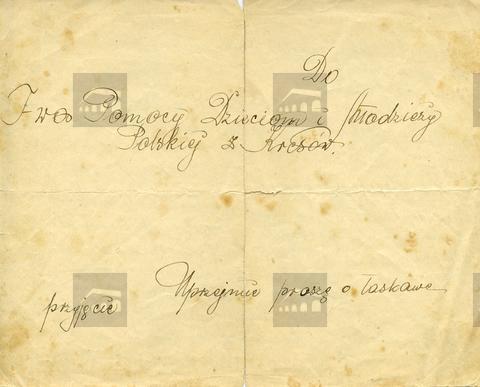 Do
T-wa Pomocy Dzieciom i Młodzieży
Polskiej z Kresów.
Uprzejmie proszę o łaskawe
przyjęcie